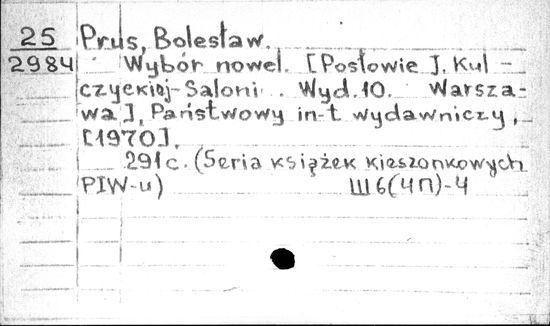 25 Prus, Bolesław.
2984 Wybór nowel. [Posłowie J. Kul-
czyckiej-Saloni. Wyd. 10. Warsza-
wa], Państwowy in-t wydawniczy,
[1970].
291 с. (Seria książek kieszonkowych
PIW-u) Ш6(4П)-4